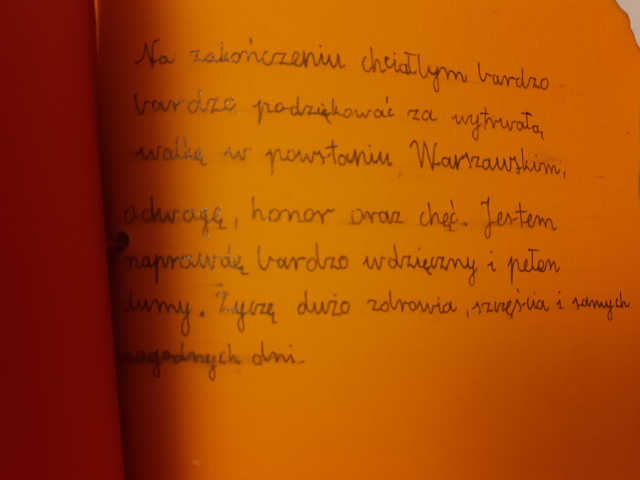 Na zakończeniu chciałbym bardzo
bardzo podziękować za wytrwałą
walkę w powstaniu Warszawskim,
odwagę, honor oraz chęć. Jestem
naprawdę bardzo wdzięczny i pełen
dumy. Życzę dużo zdrowia, szczęścia i samych
pogodnych dni.